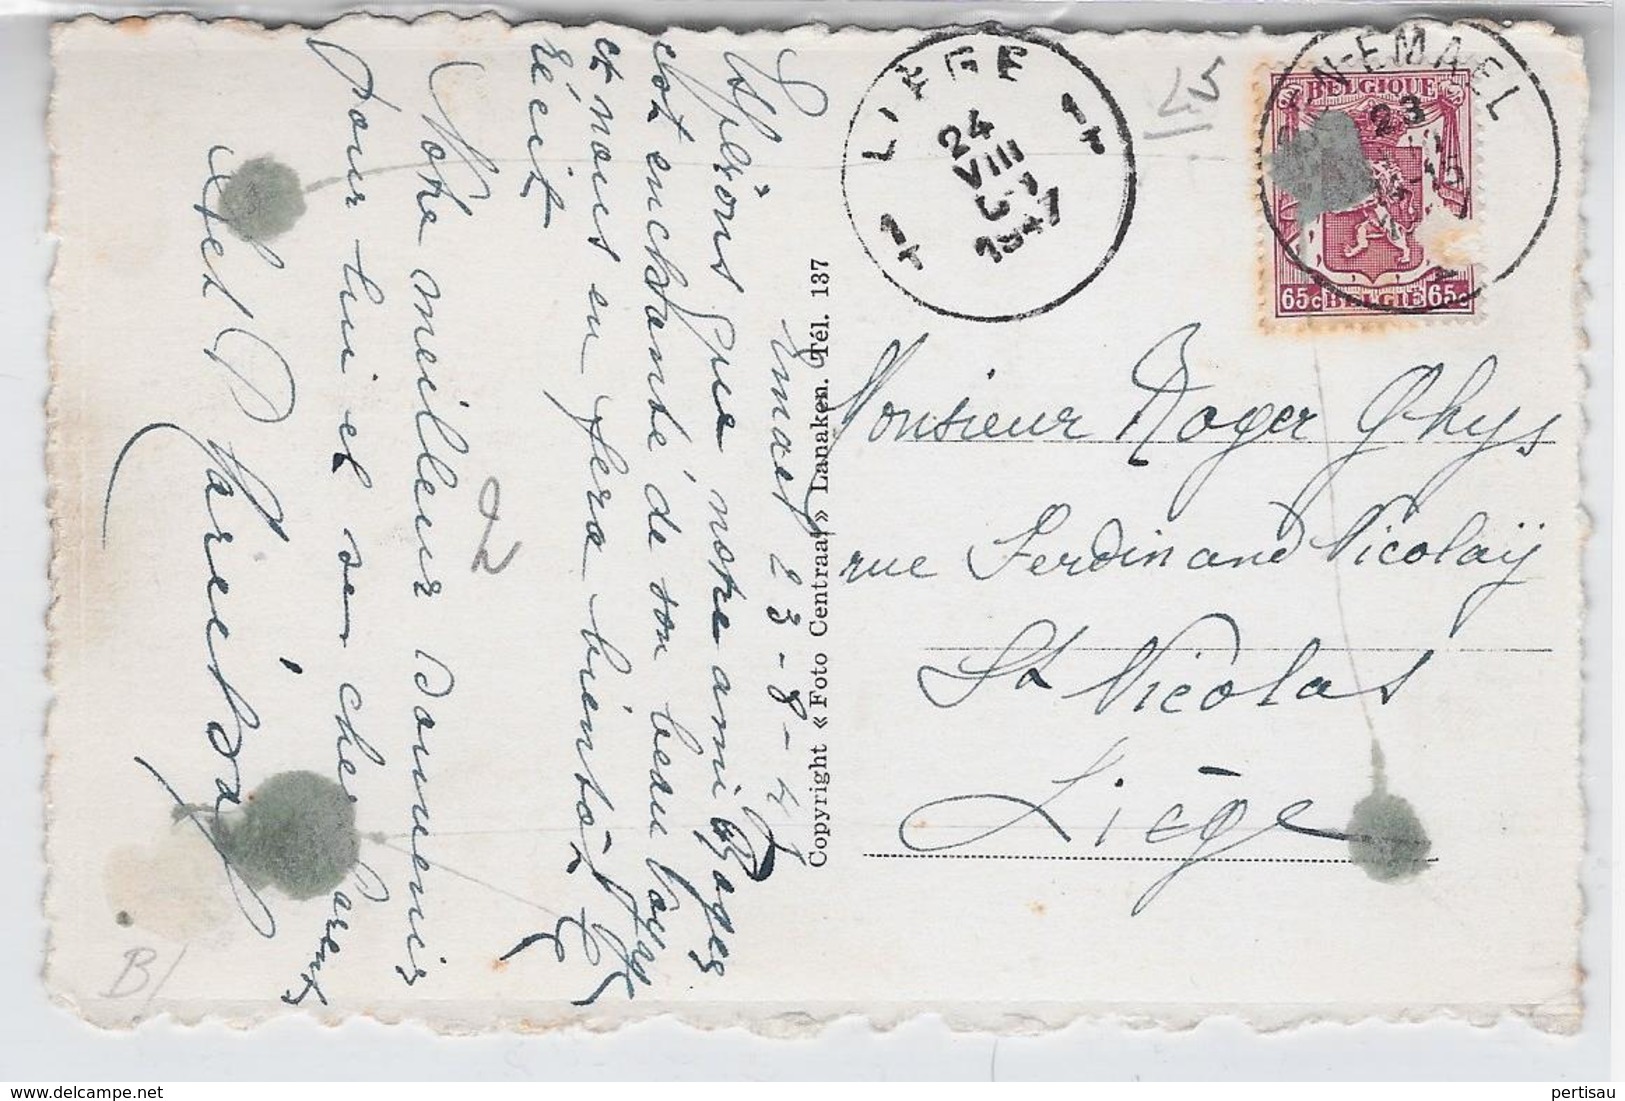 Emael 23-8-47
Espérons que notre ami Roger
est enchanté de son beau voyage
et nous en fera bientôt le
récit
Notre meilleur souvenir
pour lui et ses chers Parents
LIÈGE
1
24
VIII
1947
1
25
N-EMAEL
23
15
BELGIQUE
65c BELGIE 65c
Monsieur Roger Ghys
rue Ferdinand Nicolaÿ
St Nicolas
Liège
Copyright « Foto Centraal » Lanaken. Tél. 137
2
B/
pertisau